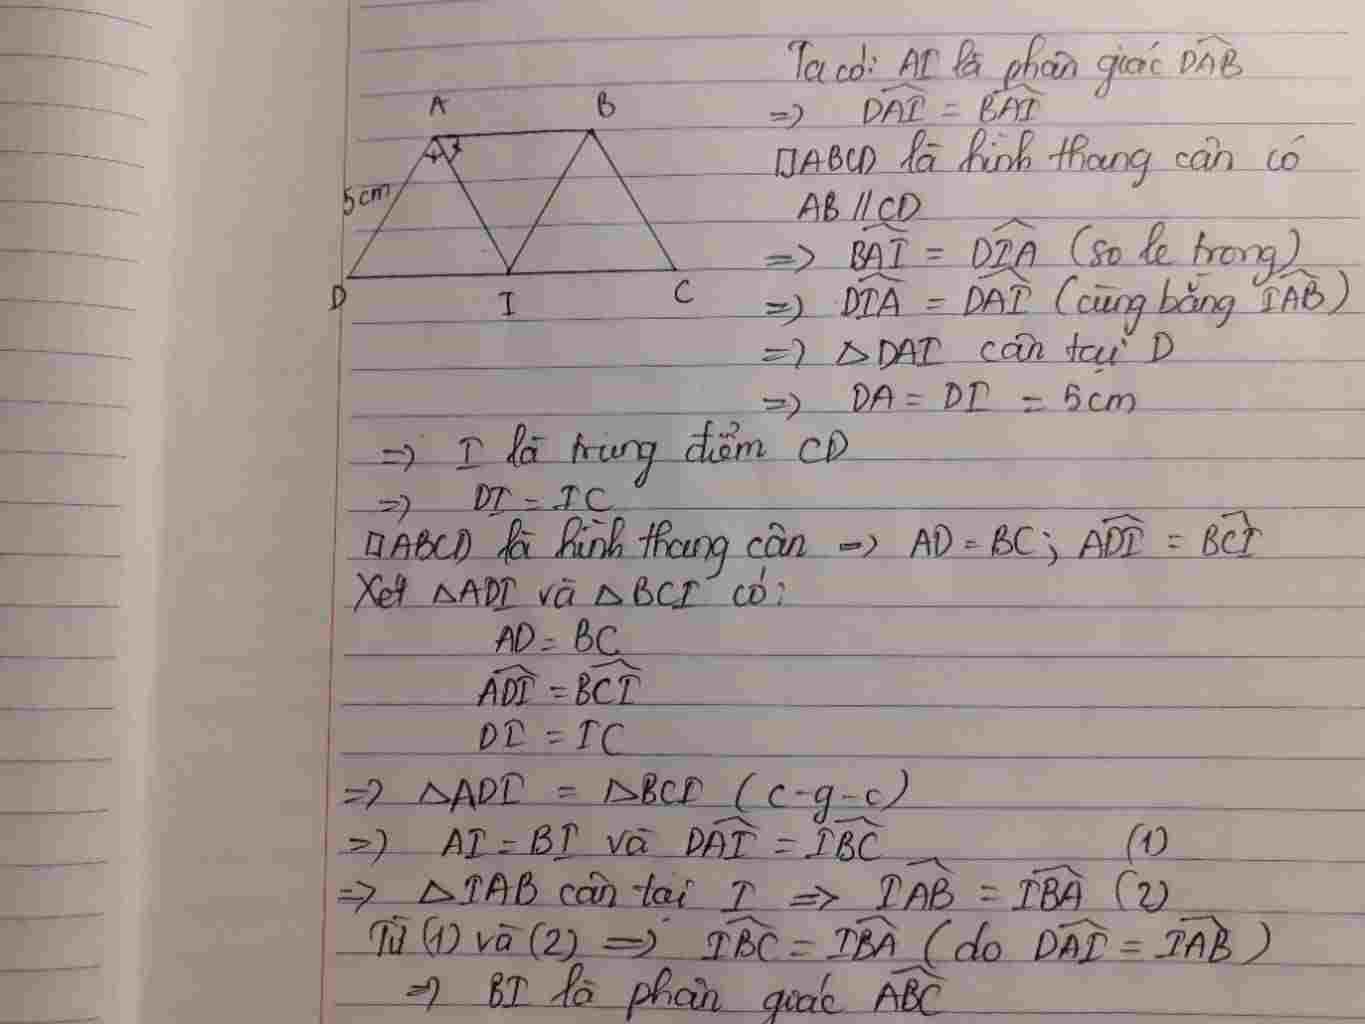 Ta có: AI là phân giác D̂AB
=> D̂AI = B̂AI
□ABCD là hình thang cân có
AB // CD
=> B̂AI = D̂IA (so le trong)
=> D̂IA = D̂AI (cùng bằng ÎAB)
=> △DAI cân tại D
=> DA = DI = 5cm
A B
5cm
D I C
=> I là trung điểm CD
=> DI = IC
□ABCD là hình thang cân => AD = BC; ÂDI = B̂CI
Xét △ADI và △BCI có:
AD = BC
ÂDI = B̂CI
DI = IC
=> △ADI = △BCI (c-g-c)
=> AI = BI và D̂AI = ÎBC (1)
=> △IAB cân tai I => ÎAB = ÎBA (2)
Từ (1) và (2) => ÎBC = ÎBA (do D̂AI = ÎAB)
=> BI là phân giác ÂBC